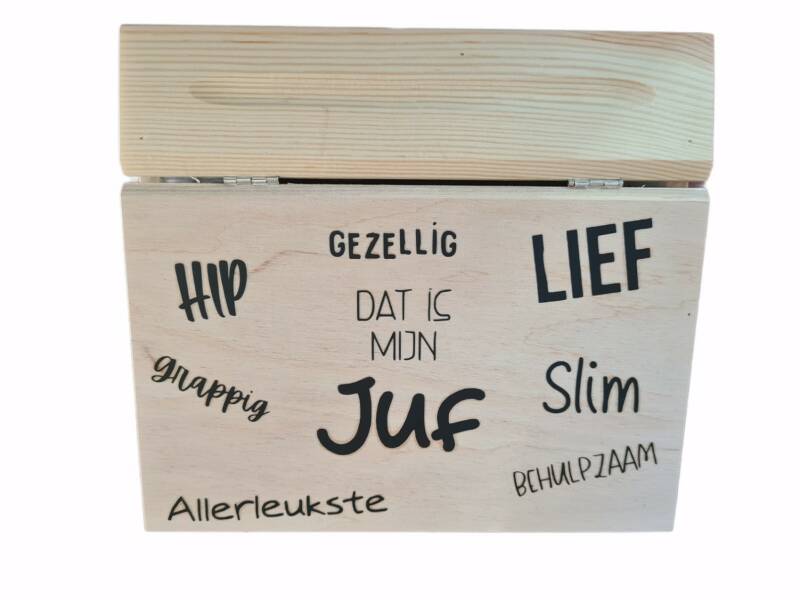 GEZELLIG
LIEF
HIP
DAT iS
MIJN
grappig
Juf
Slim
BEHULPZAAM
Allerleukste